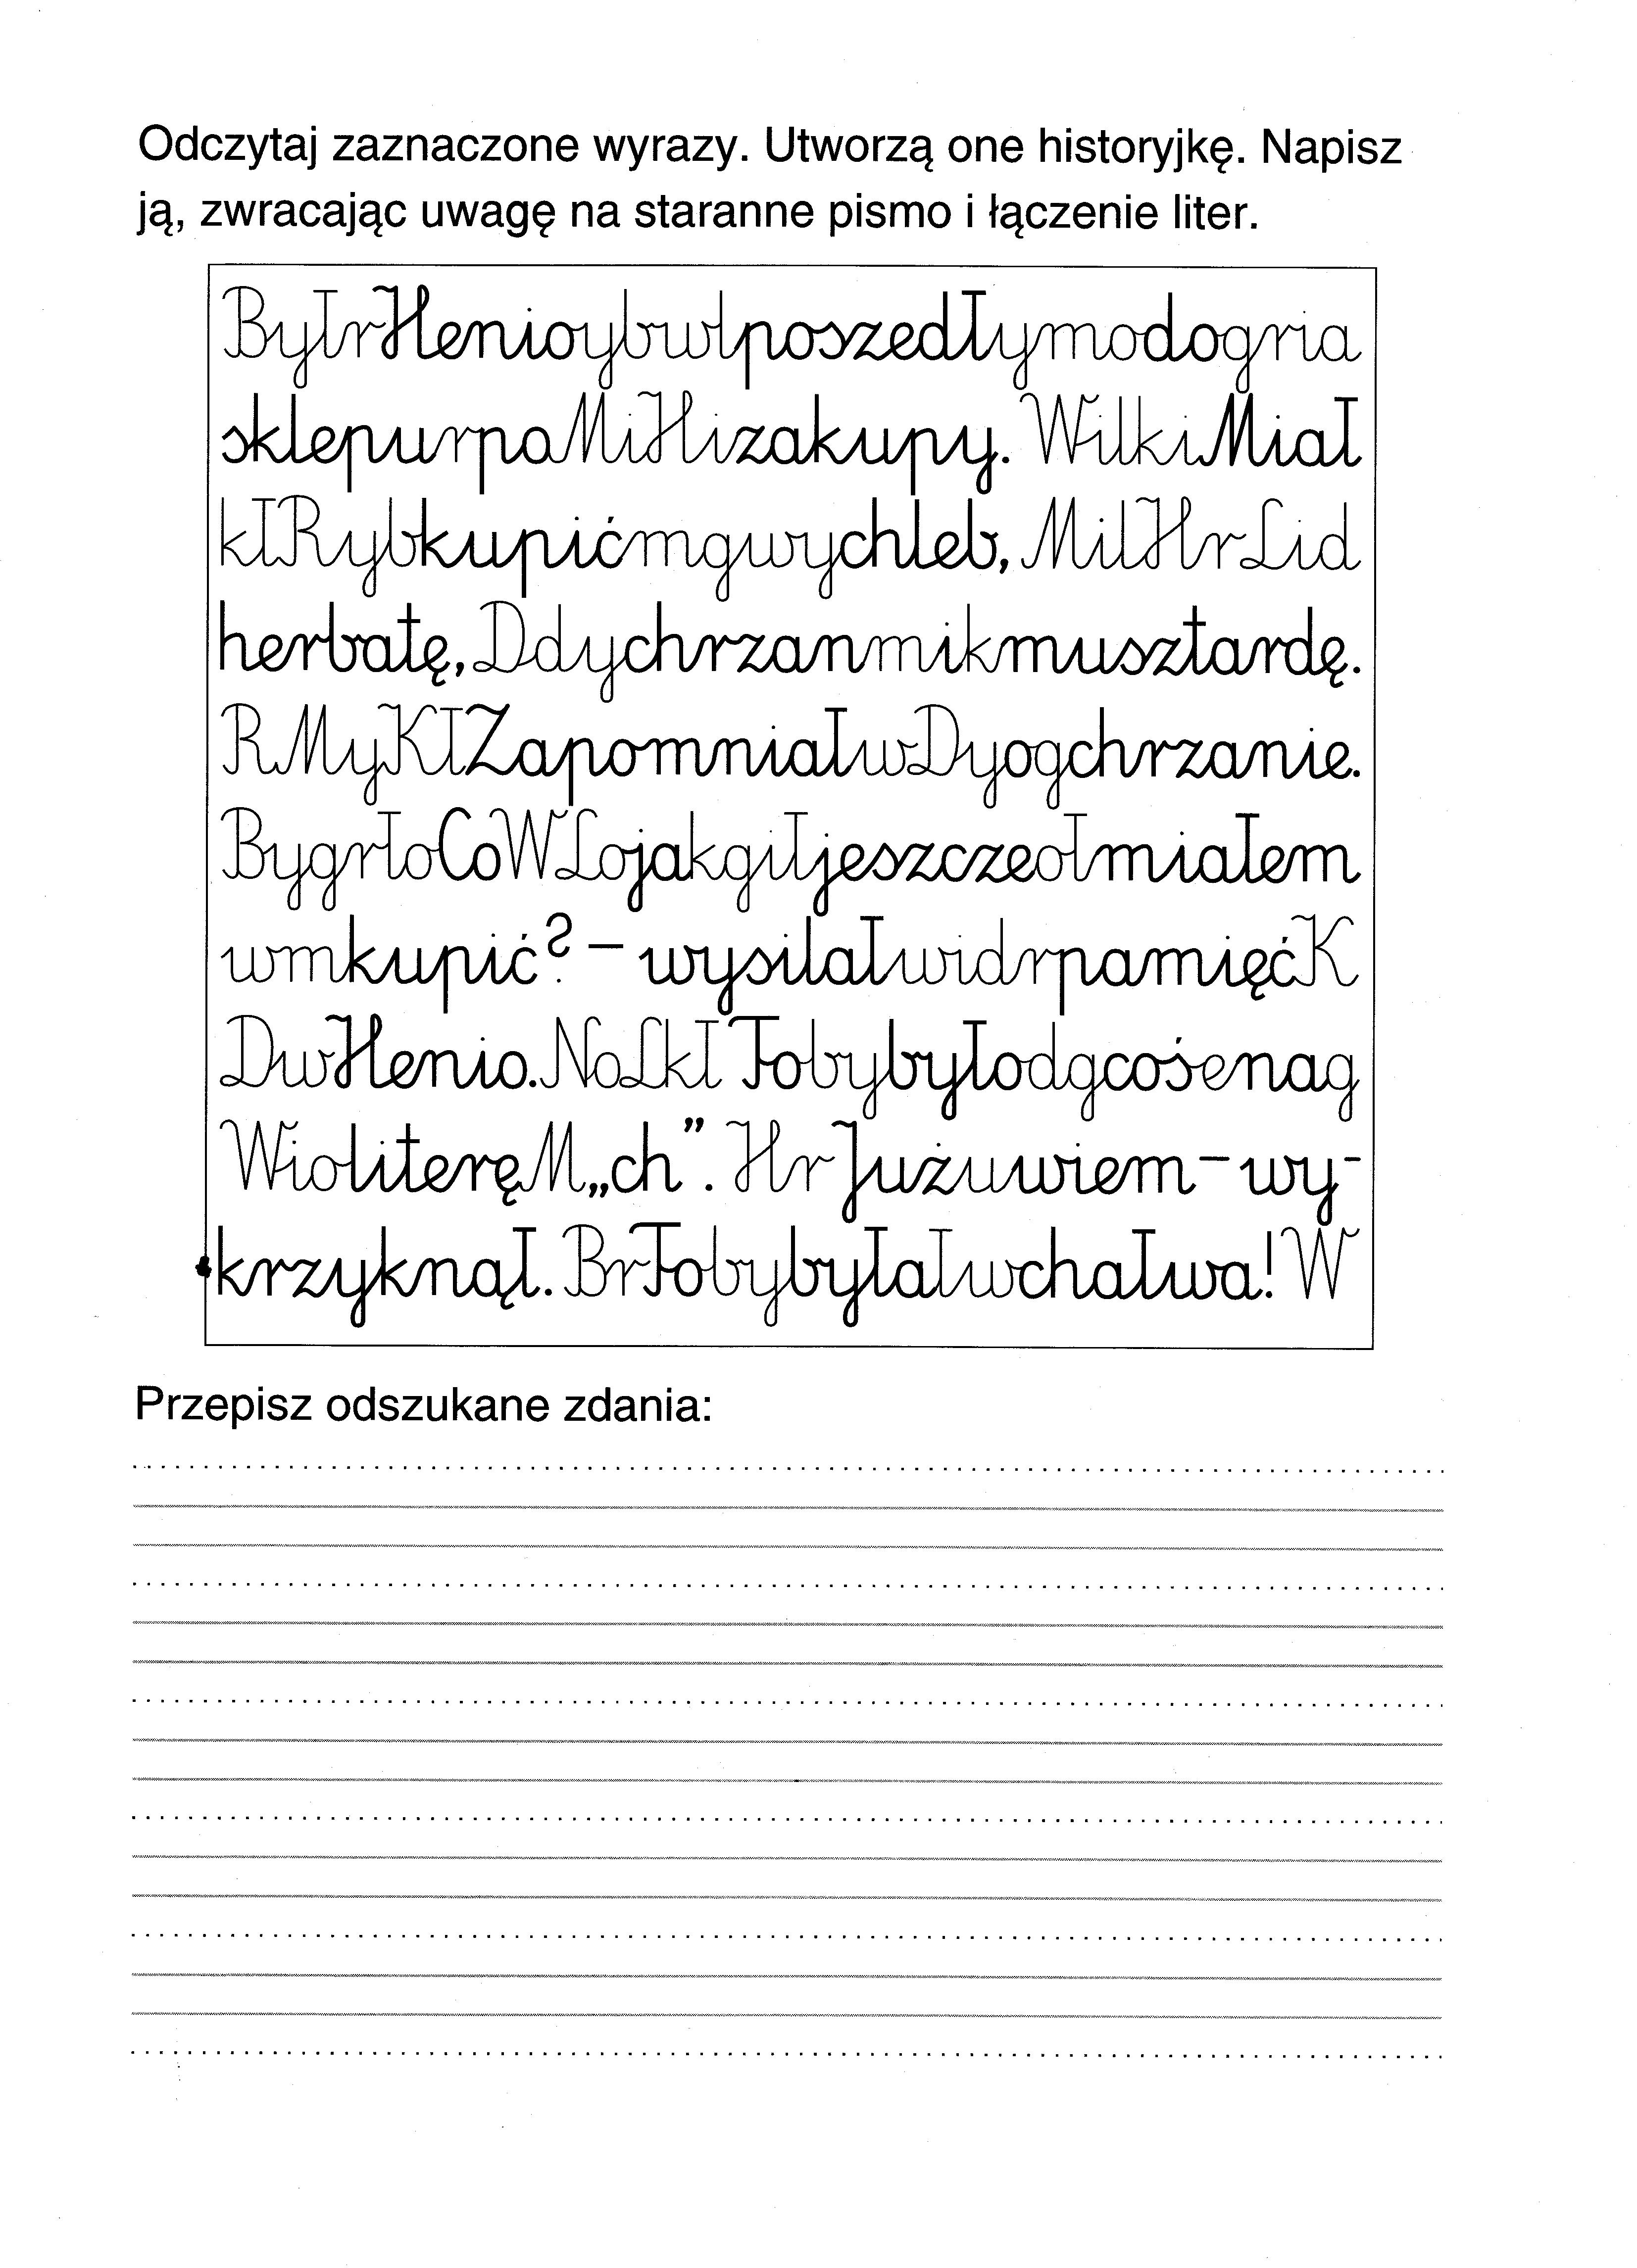 Odczytaj zaznaczone wyrazy. Utworzą one historyjkę. Napisz
ją, zwracając uwagę na staranne pismo i łączenie liter.
ByłrHenioybwlposzedłymodogria
sklepurpaMiHlizakupy. WilkiMiał
kłRybkupićmgwychleb, MilHrLid
herbatę, Ddychrzanmikmusztardę.
RMyKłZapomniałwDyogchrzanie.
BygrłoCoWLojakgiłjeszczeołmiałem
wmkupić? – wysilałwidrpamięćK
DwHenio. NoLkł Tobybyłodgcośenag
WioliteręM„ch”. HrJużuwiem – wy-
krzyknął. BrTobybyłałwchałwa! W
Przepisz odszukane zdania: